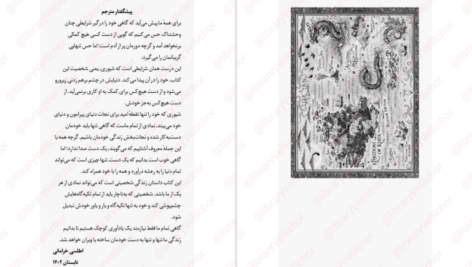 پیشگفتار مترجم
برای همه ما پیش می‌آید که گاهی خود را درگیر شرایطی چنان
وحشتناک حس می‌کنیم که گویی از دست کسی هیچ کمکی
برنخواهد آمد و گرچه دورمان پر از آدم است؛ اما حس تنهایی
گریبانمان را می‌گیرد.
این درست همان شرایطی است که شیوری، یعنی شخصیت این
کتاب، خود را در آن پیدا می‌کند. دنیایش در چشم برهم زدنی زیر و رو
می‌شود و از دست هیچ‌کس برای کمک به او کاری برنمی‌آید. از
دست هیچ‌کس به‌جز خودش.
شیوری که خود را تنها نقطهٔ امید برای نجات دنیای پیرامون و دنیای
خود می‌بیند، نمادی از تمام ماست که گاهی تنها باید خودمان
دست‌به‌کار شده و نجات‌بخش زندگی خودمان باشیم. گرچه همه با
این جمله معروف آشناییم که می‌گویند، یک دست صدا ندارد؛ اما
گاهی خوب است بدانیم که یک دست، تنها چیزی است که می‌تواند
تمام دنیا را به رعشه درآورد و همه را با خود همراه کند.
این کتاب داستان زندگی شخصیتی است که می‌تواند نمادی از هر
یک از ما باشد. شخصیتی که به‌ناچار باید از تمام تکیه‌گاه‌هایش
چشم‌پوشی کند و خود به تنها تکیه‌گاه و یار و یاور خودش تبدیل
شود.
گاهی تمام ما فقط نیازمند یک یادآوری کوچک هستیم تا بدانیم
زندگی ما تنها و تنها به دست خودمان ساخته یا ویران خواهد شد.
اطلسی خرامانی
تابستان ۱۴۰۲